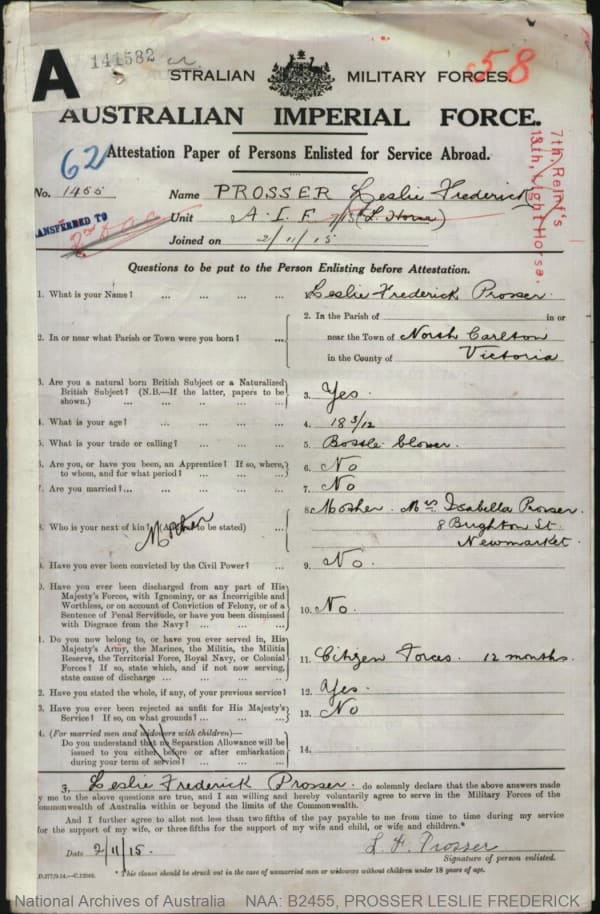 A
141582
STRALIAN MILITARY FORCES.
58
AUSTRALIAN IMPERIAL FORCE.
62
Attestation Paper of Persons Enlisted for Service Abroad.
7th. Reinf's
13th. Light Horse.
No. 1455 Name PROSSER Leslie Frederick
Unit A.I.F. 7/13 (L Horse)
ANSFERRED TO
Joined on 2/11/15
Questions to be put to the Person Enlisting before Attestation.
1. What is your Name? ... ... ... ... Leslie Frederick Prosser.
2. In or near what Parish or Town were you born? ...
2. In the Parish of in or
near the Town of North Carlton
in the County of Victoria
3. Are you a natural born British Subject or a Naturalized
British Subject? (N.B.—If the latter, papers to be
shown.) ... ... ... ... ...
3. Yes.
4. What is your age? ... ... ... ... 4. 18 5/12
5. What is your trade or calling? ... ... ... 5. Bottle blower.
6. Are you, or have you been, an Apprentice? If so, where,
to whom, and for what period? ... ... ...
6. No
7. Are you married?... ... ... ... ... 7. No
8. Who is your next of kin? (A to be stated) ...
Mother
8. Mother. Mrs. Isabella Prosser.
8 Brighton St.
Newmarket.
9. Have you ever been convicted by the Civil Power? ... 9. No.
0. Have you ever been discharged from any part of His
Majesty's Forces, with Ignominy, or as Incorrigible and
Worthless, or on account of Conviction of Felony, or of a
Sentence of Penal Servitude, or have you been dismissed
with Disgrace from the Navy? ... ... ...
10. No.
1. Do you now belong to, or have you ever served in, His
Majesty's Army, the Marines, the Militia, the Militia
Reserve, the Territorial Force, Royal Navy, or Colonial
Forces? If so, state which, and if not now serving,
state cause of discharge ... ... ... ...
11. Citizen Forces. 12 months.
2. Have you stated the whole, if any, of your previous service? 12. Yes.
3. Have you ever been rejected as unfit for His Majesty's
Service? If so, on what grounds? ... ... ...
13. No
4. (For married men and widowers with children)—
Do you understand that no Separation Allowance will be
issued to you either before or after embarkation
during your term of service?
14.
I, Leslie Frederick Prosser. do solemnly declare that the above answers made
y me to the above questions are true, and I am willing and hereby voluntarily agree to serve in the Military Forces of the
ommonwealth of Australia within or beyond the limits of the Commonwealth.
And I further agree to allot not less than two fifths of the pay payable to me from time to time during my service
for the support of my wife, or three fifths for the support of my wife and child, or wife and children.*
Date 2/11/15. L. F. Prosser
Signature of person enlisted.
D.277/9.14.—C.12045. * This clause should be struck out in the case of unmarried men or widowers without children under 18 years of age.
National Archives of Australia NAA: B2455, PROSSER LESLIE FREDERICK